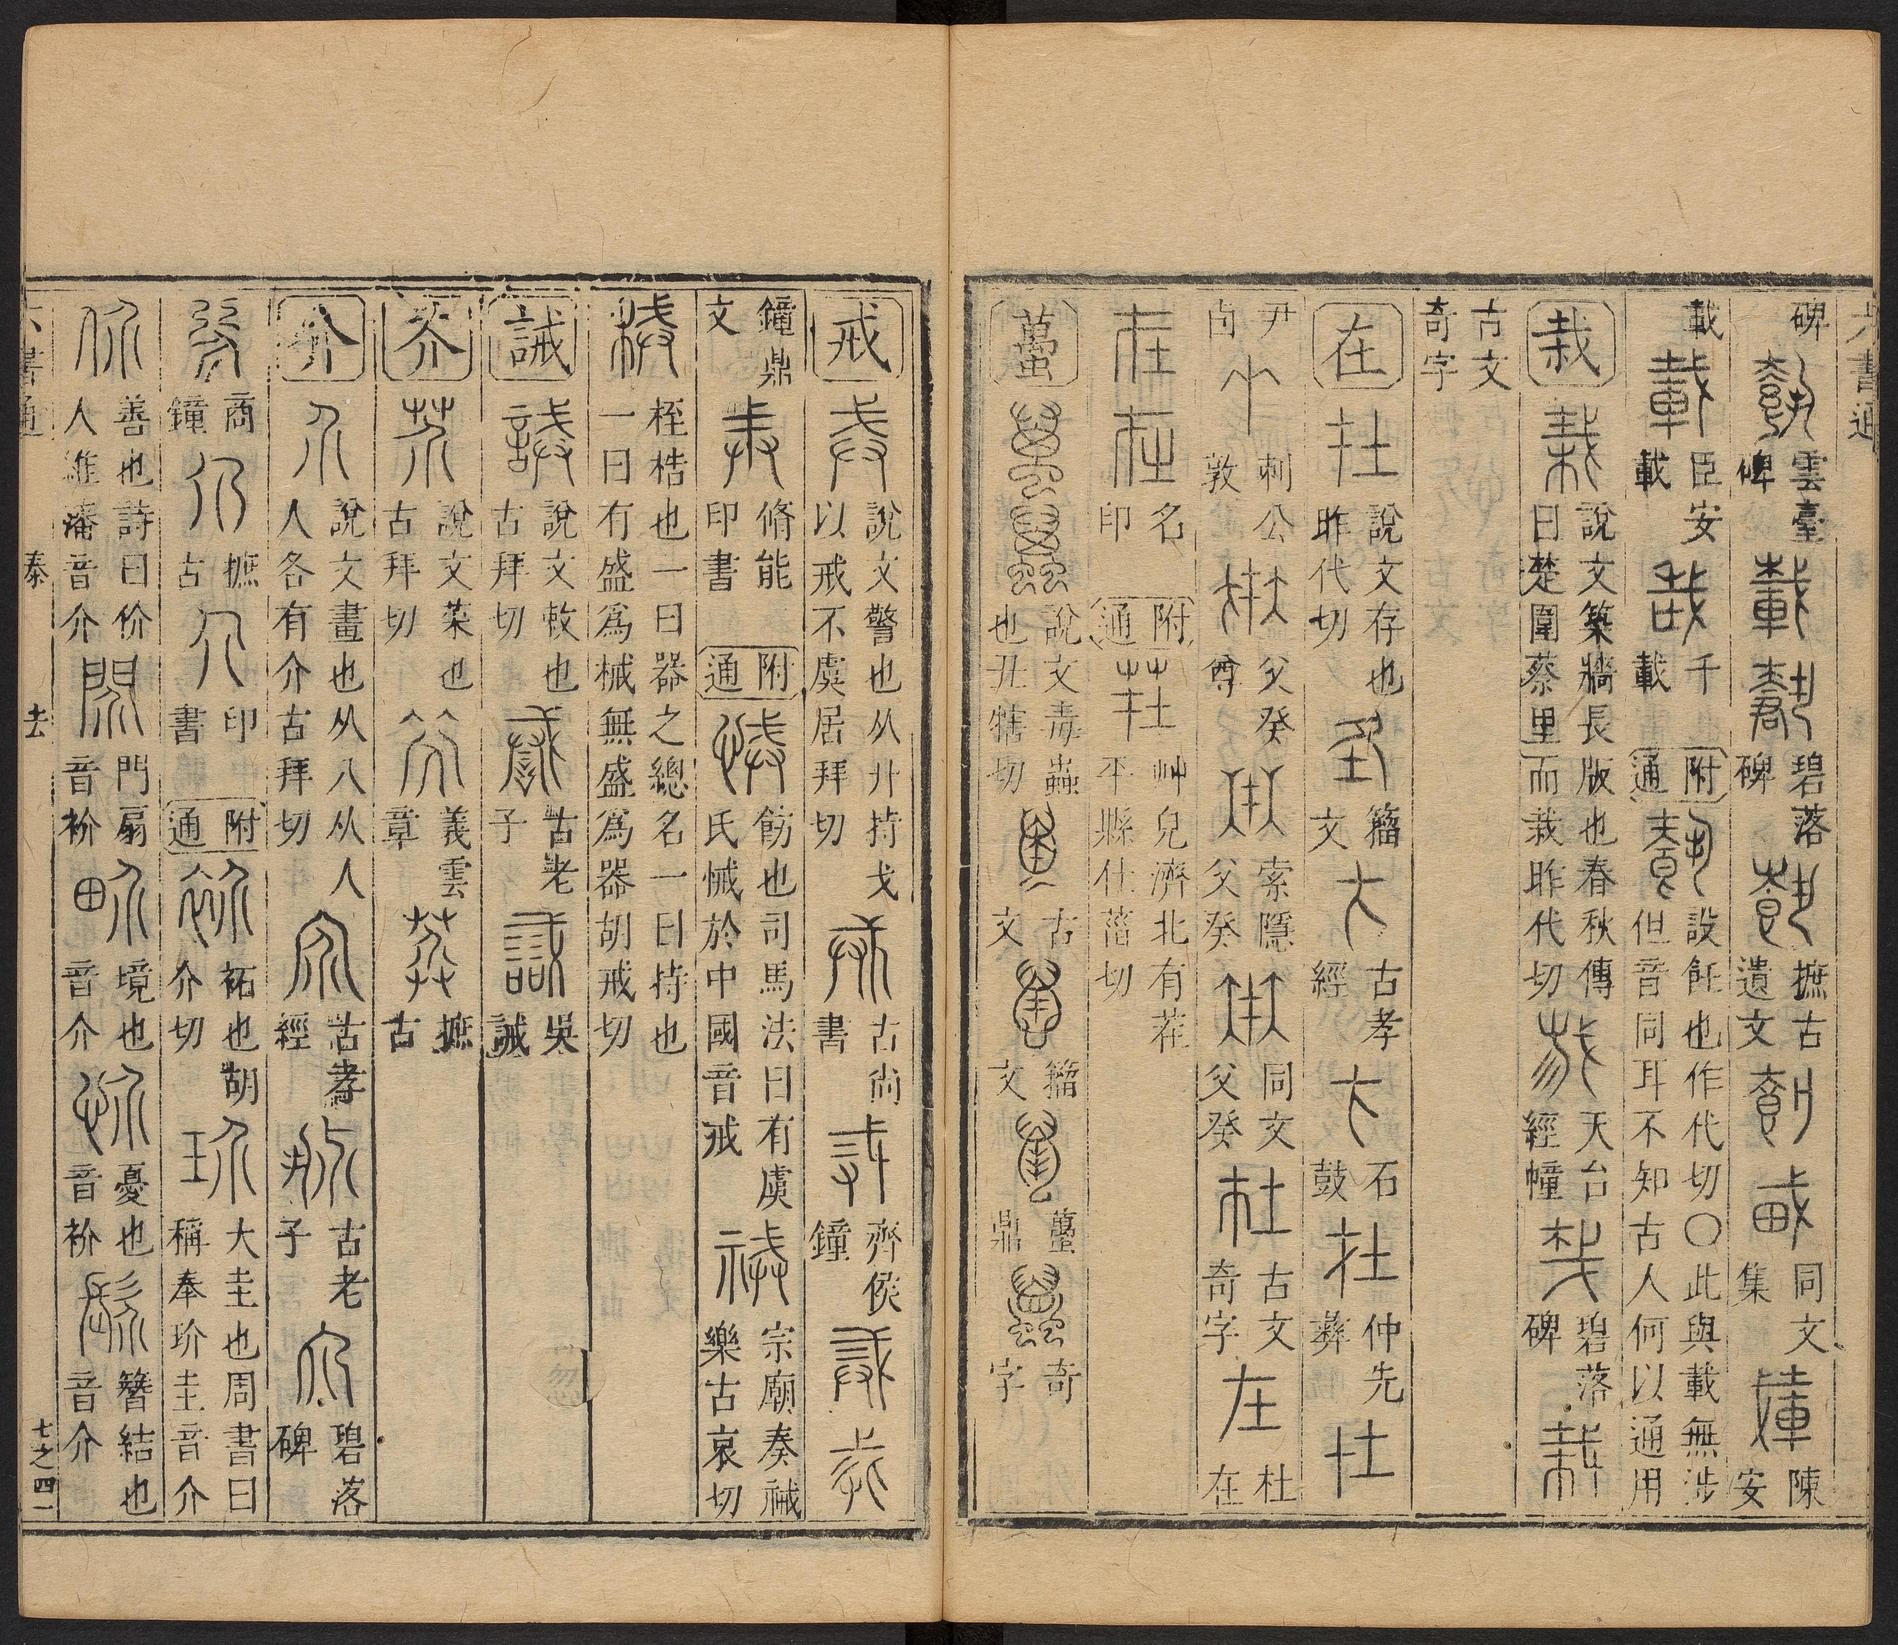 六書通
碑 雲臺碑 碧落碑 摭古遺文 同文集 陳安
載 臣安載 千載 附通 設飪也作代切〇此與載無涉但音同耳不知古人何以通用
栽 說文築牆長版也春秋傳曰楚圍蔡里而栽昨代切 天台經幢 碧落碑
古文奇字
在 說文存也昨代切 籀文 古孝經 石鼓 仲先彝
尹卣 刺公敦 父癸尊 索隱父癸 同文父癸 古文奇字 杜在
名印 附通 艸皃濟北有茬平縣仕菑切
蠆 說文毒蟲也丑犗切 古文 籀文 蠆鼎 奇字
戒 說文警也从廾持戈以戒不虞居拜切 古尚書 齊侯鐘
鐘鼎文 脩能印書 附通 飭也司馬法曰有虞氏悈於中國音戒 宗廟奏祴樂古哀切
桎梏也一曰器之總名一曰持也一曰有盛爲械無盛爲器胡戒切
誡 說文敕也古拜切 古老子 吳誡
芥 說文菜也古拜切 義雲章 摭古
介 說文畫也从八从人人各有介古拜切 古孝經 古老子 碧落碑
商鐘 摭古 印書 附通 祏也胡介切 大圭也周書曰稱奉玠圭音介
善也詩曰价人維藩音介 門扇音衸 境也音介 憂也音衸 簪結也音介
六書通 泰 去 七之四一